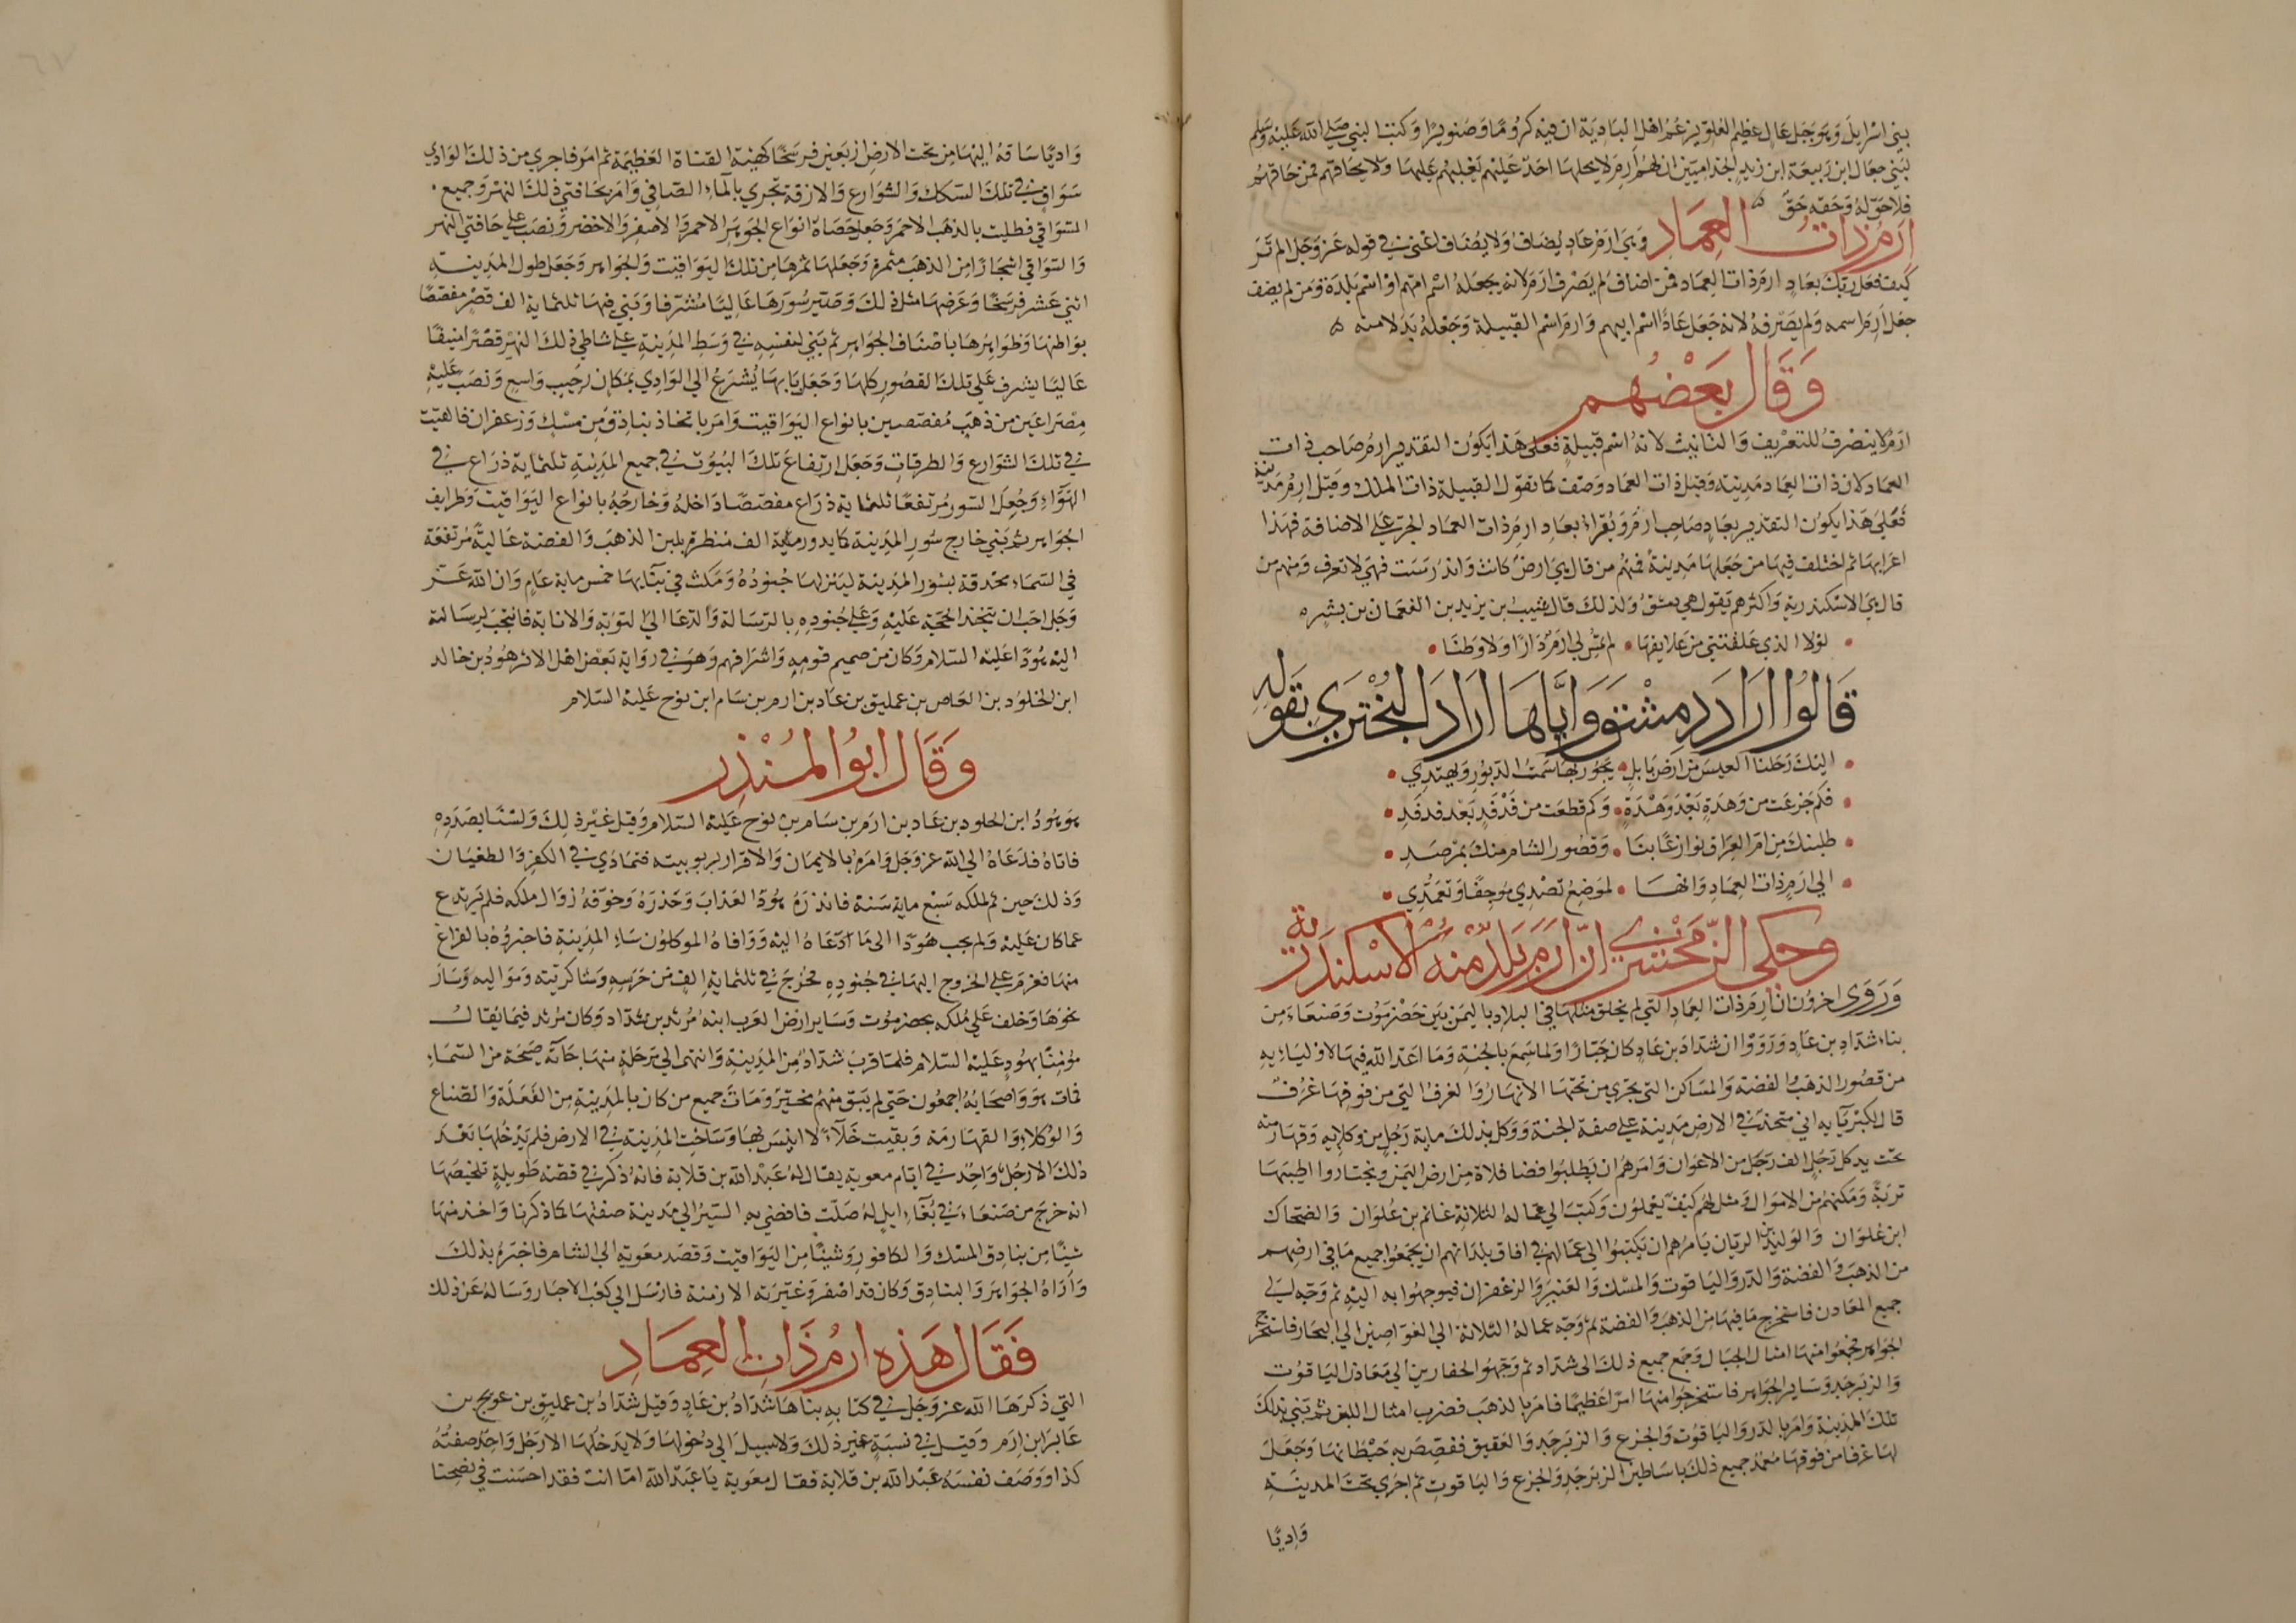 بني اسرايل وهو جبل عال عظيم العلو يزعم اهل البادية ان فيه كروما وصنوبرا وكتب النبي صلى الله عليه وسلم
لبني جعال ابن ربيعة ابن زيد الجذاميين ان لهم ارم لا يحلها احد عليهم يغلبهم عليها ولا يحاقهم فمن حاقهم
فلا حق له وحقهم حق
ارم ذات العماد وهي ارم عاد يضاف ولا يضاف اعني في قوله عز وجل الم تر
كيف فعل ربك بعاد ارم ذات العماد فمن اضاف لم يصرف ارم لانه يجعله اسم امهم او اسم بلدة ومن لم يضف
جعل ارم اسمه ولم يصرفه لانه جعل عادا اسم ابيهم وارم اسم القبيلة وجعله بدلا منه
وقال بعضهم
ارم لا ينصرف للتعريف والتانيث لانه اسم قبيلة فعلى هذا يكون التقدير ارم صاحب ذات
العماد لان ذات العماد مدينة وقيل ذات العماد وصف كما تقول القبيلة ذات الملك وقيل ارم مدينة
فعلى هذا يكون التقدير بعاد صاحب ارم ويقراء بعاد ارم ذات العماد الجر على الاضافة فهذا
اعرابها ثم اختلف فيها من جعلها مدينة فمنهم من قال هي ارض كانت واندرست فهي لا تعرف ومنهم من
قال هي الاسكندرية واكثرهم يقول هي دمشق ولذلك قال شبيب بن يزيد بن النعمان بن بشير
لولا الذي علقتني من علايقها • لم تمس لي ارم دارا ولا وطنا
قالوا اراد دمشق واياها اراد البختري بقوله
اليك رحلنا العيس من ارض بابل • يجور بها سمت الدبور ويهتدي
فكم جزعت من وهدة بعد وهدة • وكم قطعت من فدفد بعد فدفد
طلبنك من ام العراق نوازعا بنا • وقصور الشام منك بمرصد
الى ارم ذات العماد وانها • لموضع قصدي موجفا وتعمدي
وحكى الزمخشري ان ارم بلد منه الاسكندرية
وروى اخرون ان ارم ذات العماد التي لم يخلق مثلها في البلاد باليمن بين حضرموت وصنعاء من
بناء شداد بن عاد ورووا ان شداد بن عاد كان جبارا ولما سمع بالجنة وما اعد الله فيها لاوليائه
من قصور الذهب والفضة والمساكن التي تجري من تحتها الانهار والغرف التي من فوقها غرف
قال لكبرآيه اني متخذ في الارض مدينة على صفة الجنة ووكل بذلك ماية رجل من وكلايه وقهارمته
تحت يد كل رجل الف رجل من الاعوان وامرهم ان يطلبوا فضا فلاة من ارض اليمن ويختاروا اطيبها
تربة ومكنهم من الاموال ومثل لهم كيف يعملون وكتب الى عماله الثلاثة غانم بن علوان والضحاك
ابن علوان والوليد بن الريان يامرهم ان يكتبوا الى عمالهم في افاق بلدانهم ان يجمعوا جميع ما في ارضهم
من الذهب والفضة والدر والياقوت والمسك والعنبر والزعفران فيوجهوا به اليه ثم وجه الى
جميع المعادن فاستخرج ما فيها من الذهب والفضة ثم وجه عماله الثلاثة الى الغواصين الى البحار فاستخرج
الجواهر فجمعوا منها امثال الجبال وجمع جميع ذلك الى شداد ثم وجهوا الحفارين الى معادن الياقوت
والزبرجد وساير الجواهر فاستخرجوا منها امرا عظيما فامر بالذهب فضرب امثال اللبن ثم بني بذلك
تلك المدينة وامر بالدر والياقوت والجزع والزبرجد والعقيق ففصص به حيطانها وجعل
لها غرفا من فوقها معمد جميع ذلك باساطين الزبرجد والجزع والياقوت ثم اجرى تحت المدينة
واديا
واديا ساقه اليها من تحت الارض اربعين فرسخا كهيئة القناة العظيمة ثم امر فاجري من ذلك الوادي
سواق في تلك السكك والشوارع والازقة تجري بالمآء الصافي وامر بحافتي ذلك النهر وجميع
السواقي فطليت بالذهب الاحمر وجعل حصاه انواع الجواهر الاحمر والاصفر والاخضر ونصب على حافتي النهر
والسواقي اشجارا من الذهب مثمرة وجعلها ثمرها من تلك اليواقيت والجواهر وجعل طول المدينة
اثني عشر فرسخا وعرضها مثل ذلك وصير سورها عاليا مشرفا وبني فيها ثلثماية الف قصر مفصصا
بواطنها وظواهرها باصناف الجواهر ثم بني لنفسه في وسط المدينة على شاطي ذلك النهر قصرا منيفا
عاليا يشرف على تلك القصور كلها وجعل بابها يشرع الى الوادي بمكان رحيب واسع ونصب عليه
مصراعين من ذهب مفصصين بانواع اليواقيت وامر باتخاذ بنادق من مسك وزعفران فالقيت
في تلك الشوارع والطرقات وجعل ارتفاع تلك البيوت في جميع المدينة ثلثماية ذراع في
الهوآء وجعل السور مرتفعا ثلثماية ذراع مفصصا داخله وخارجه بانواع اليواقيت وظرايف
الجواهر ثم بني خارج سور المدينة كما يدور ماية الف منظرة بلبن الذهب والفضة عالية مرتفعة
في السماء محدقة بسور المدينة لينزلها جنوده ومكث في بنآيها خمس ماية عام وان الله عز
وجل احب ان يتخذ الحجة عليه وعلى جنوده بالرسالة والدعا الى التوبة والانابة فانتجب لرسالته
اليه هودا عليه السلام وكان من صميم قومه واشرافهم وهو في رواية بعض اهل الاثر هود بن خالد
ابن الخلود بن العاص بن عمليق بن عاد بن ارم بن سام ابن نوح عليه السلام
وقال ابو المنذر
هو هود ابن الخلود بن عاد بن ارم بن سام بن نوح عليه السلام وقيل غير ذلك ولسنا بصدده
فاتاه فدعاه الى الله عز وجل وامره بالايمان والاقرار بربوبيته فتمادي في الكفر والطغيان
وذلك حين تم لملكه سبع ماية سنة فانذره هود العذاب وحذره وخوفه زوال ملكه فلم يرتدع
عما كان عليه ولم يجب هودا الى ما ادعاه اليه ووافاه الموكلون ببناء المدينة فاخبروه بالفراغ
منها فعزم على الخروج اليها في جنوده فخرج في ثلثماية الف من حرسه وشاكريته ومواليه وسار
نحوها وخلف على ملكه بحضرموت وساير ارض العرب ابنه مرثد بن شداد وكان مرثد فيما يقال
مؤمنا بهود عليه السلام فلما قرب شداد من المدينة وانتهى الى مرحلة منها جآته صيحة من السماء
فمات هو واصحابه اجمعون حتى لم يبق منهم مخبر ومات جميع من كان بالمدينة من الفعلة والصناع
والوكلاء والقهارمة وبقيت خلاء لا انيس بها وساخت المدينة في الارض فلم يدخلها بعد
ذلك الا رجل واحد في ايام معوية يقال له عبد الله بن قلابة فانه ذكر في قصة طويلة تلخيصها
انه خرج من صنعاء في بغآء ابل له ضلت فافضي به السير الى مدينة صفتها كما ذكرنا واخذ منها
شيئا من بنادق المسك والكافور وشيئا من اليواقيت وقصد معوية الى الشام فاخبره بذلك
واراه الجواهر والبنادق وكان قد اصفر وغيرته الازمنة فارسل الى كعب الاحبار وساله عن ذلك
فقال هذه ارم ذات العماد
التي ذكرها الله عز وجل في كتابه بناها شداد بن عاد وقيل شداد بن عمليق بن عويج بن
عابر ابن ارم وقيل في نسبه غير ذلك ولا سبيل الى دخولها ولا يدخلها الا رجل واحد صفته
كذا ووصف نفسه عبد الله بن قلابة فقال معوية يا عبد الله اما انت فقد احسنت في نصحنا